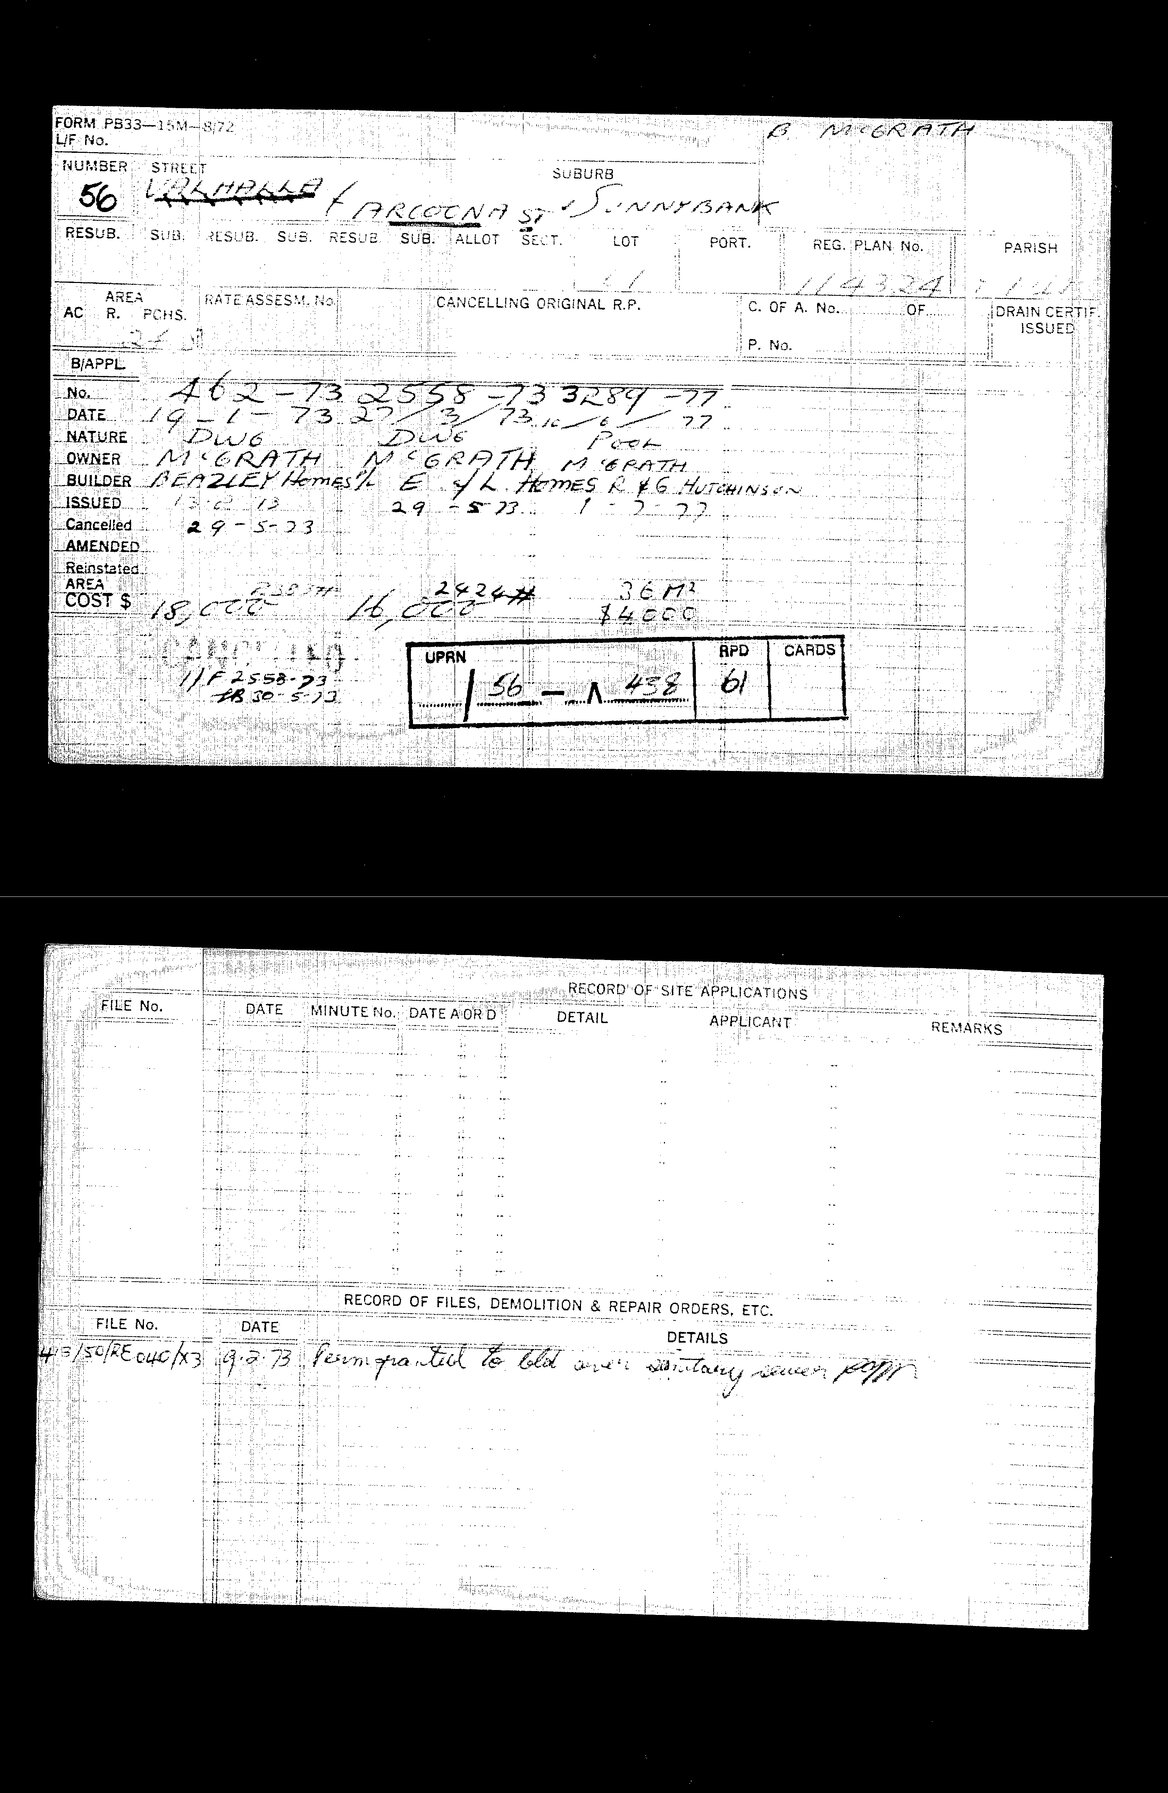 FORM PB33—15M—8/72
B. McGRATH
L/F No.
NUMBER STREET SUBURB
56 VALHALLA / ARCOONA ST SUNNYBANK
RESUB. SUB. RESUB. SUB. RESUB. SUB. ALLOT SECT. LOT PORT. REG. PLAN No. PARISH
114324
AREA RATE ASSESM. No. CANCELLING ORIGINAL R.P. C. OF A. No. OF DRAIN CERTIF. ISSUED
AC R. PCHS.
P. No.
B/APPL.
No. 462-73 2558-73 3289-77
DATE 19-1-73 27/3/73 16/6/77
NATURE DWG DWG POOL
OWNER McGRATH McGRATH McGRATH
BUILDER BEAZLEY Homes P/L E & L HOMES R & G HUTCHINSON
ISSUED 13.2.73 29-5-73 1-7-77
Cancelled 29-5-73
AMENDED
Reinstated
AREA 2424# 36 M²
COST $ 18,000 16,000 $4000
CANCELLED
V/F 2558-73
30-5-73
UPRN RPD CARDS
/ 56 — A 438 61
RECORD OF SITE APPLICATIONS
FILE No. DATE MINUTE No. DATE A OR D DETAIL APPLICANT REMARKS
RECORD OF FILES, DEMOLITION & REPAIR ORDERS, ETC.
FILE No. DATE DETAILS
413/50/RE040/X3 9.2.73 Perm granted to bld over sanitary sewer